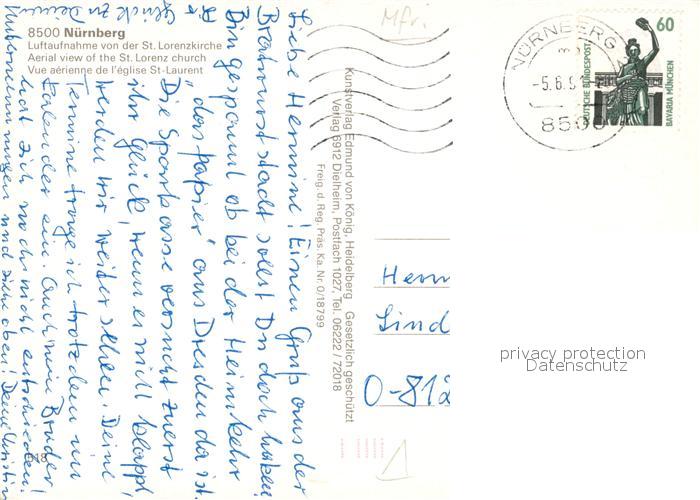 8500 Nürnberg
Luftaufnahme von der St. Lorenzkirche
Aerial view of the St. Lorenz church
Vue aérienne de l'église St-Laurent
Mfr.
NÜRNBERG
-5.6.9
8500
60
DEUTSCHE BUNDESPOST
BAVARIA MÜNCHEN
Kunstverlag Edmund von König, Heidelberg Gesetzlich geschützt
Verlag 6912 Dielheim, Postfach 1027, Tel. 06222 / 72018
Freig. d. Reg. Präs. Ka. Nr. 0/18799
Liebe Hermine! Einen Gruß aus der
Bratwurststadt sollst Du doch haben!
Bin gespannt ob bei der Heimkehr
"das Papier" aus Dresden da ist.
Die Sparkasse versucht zuerst
ihr Glück, wenn es nicht klappt,
werden wir weiter sehen. Deine
Termine trage ich trotzdem im
Kalender ein. Auch mein Bruder
hat sich noch nicht entschieden!
Unternehmungen und Liebe oben! Deine Christin
Dir
Glück zu Deinen
518
Herm
Lind
O-812
1
privacy protection
Datenschutz